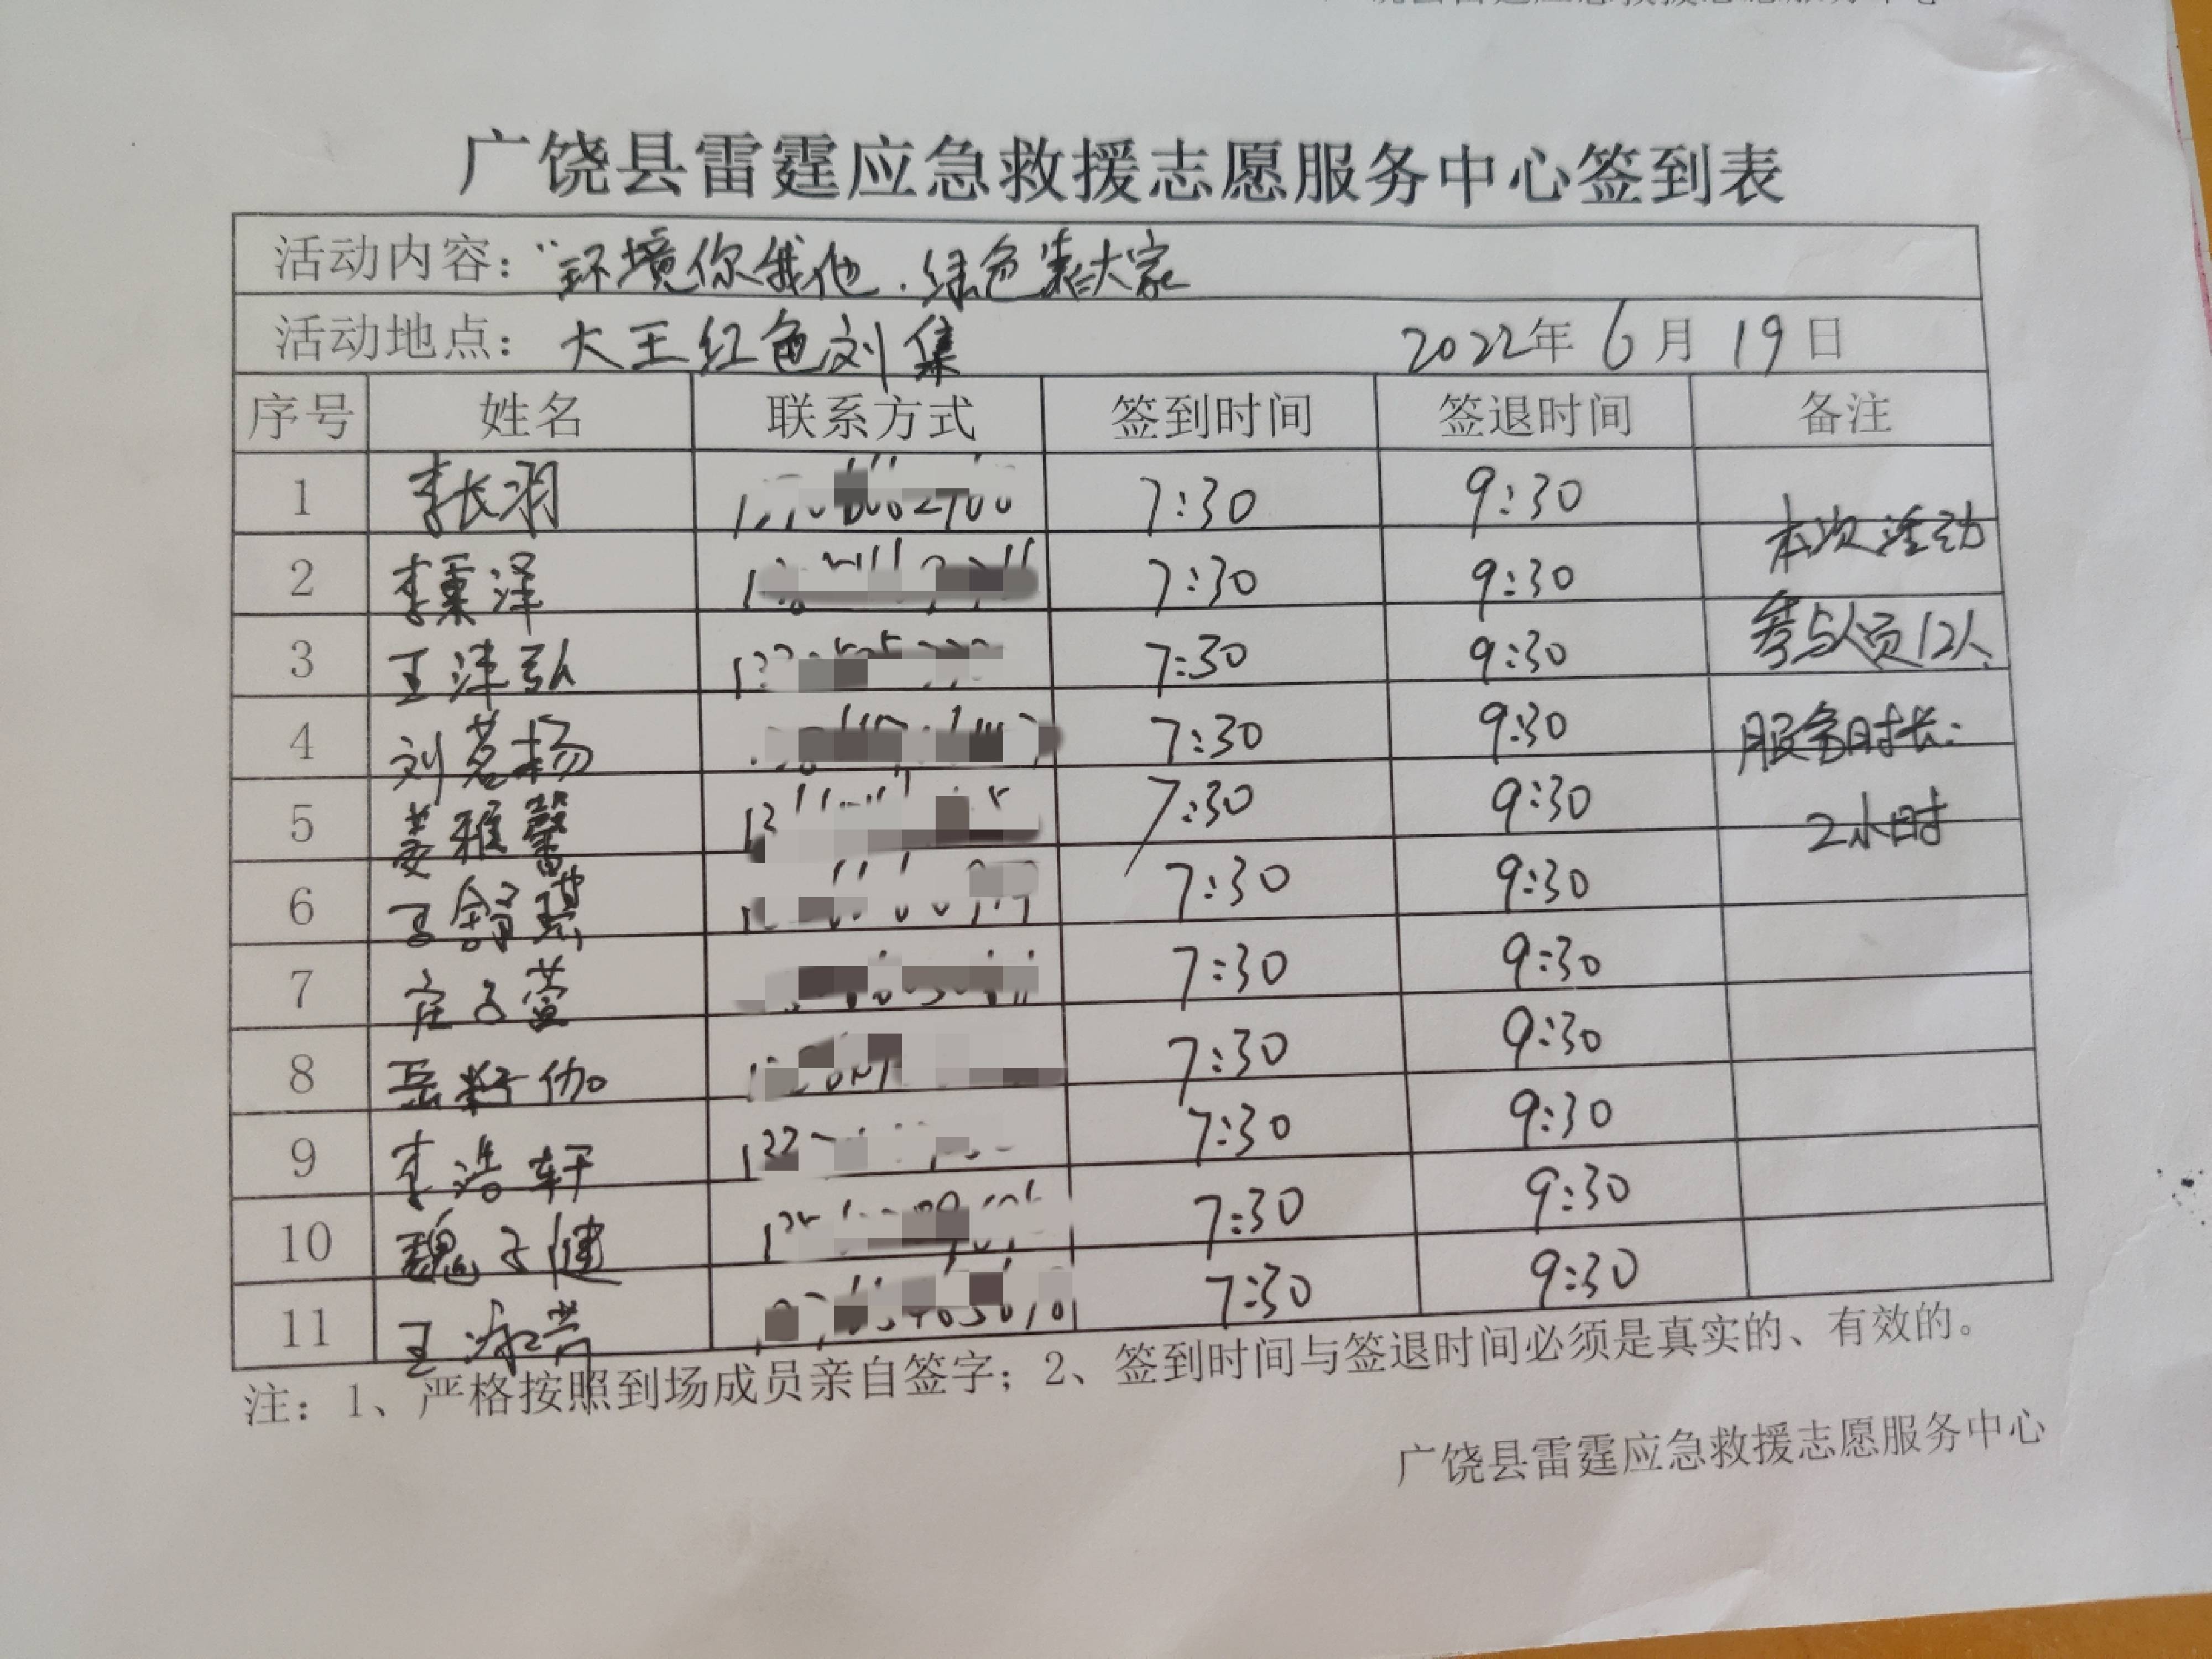 广饶县雷霆应急救援志愿服务中心签到表
活动内容：“环境你我他.绿色靠大家
活动地点：大王红色刘集 2022年6月19日
序号 姓名 联系方式 签到时间 签退时间 备注
1 李长羽 7:30 9:30
2 李秉泽 7:30 9:30
3 王沣弘 7:30 9:30
4 刘茗扬 7:30 9:30
5 姜雅馨 7:30 9:30
6 王舒琪 7:30 9:30
7 崔子萱 7:30 9:30
8 岳籽伽 7:30 9:30
9 李浩轩 7:30 9:30
10 魏子健 7:30 9:30
11 王淑芳 7:30 9:30
本次活动
参与人员12人
服务时长：
2小时
注：1、严格按照到场成员亲自签字；2、签到时间与签退时间必须是真实的、有效的。
广饶县雷霆应急救援志愿服务中心